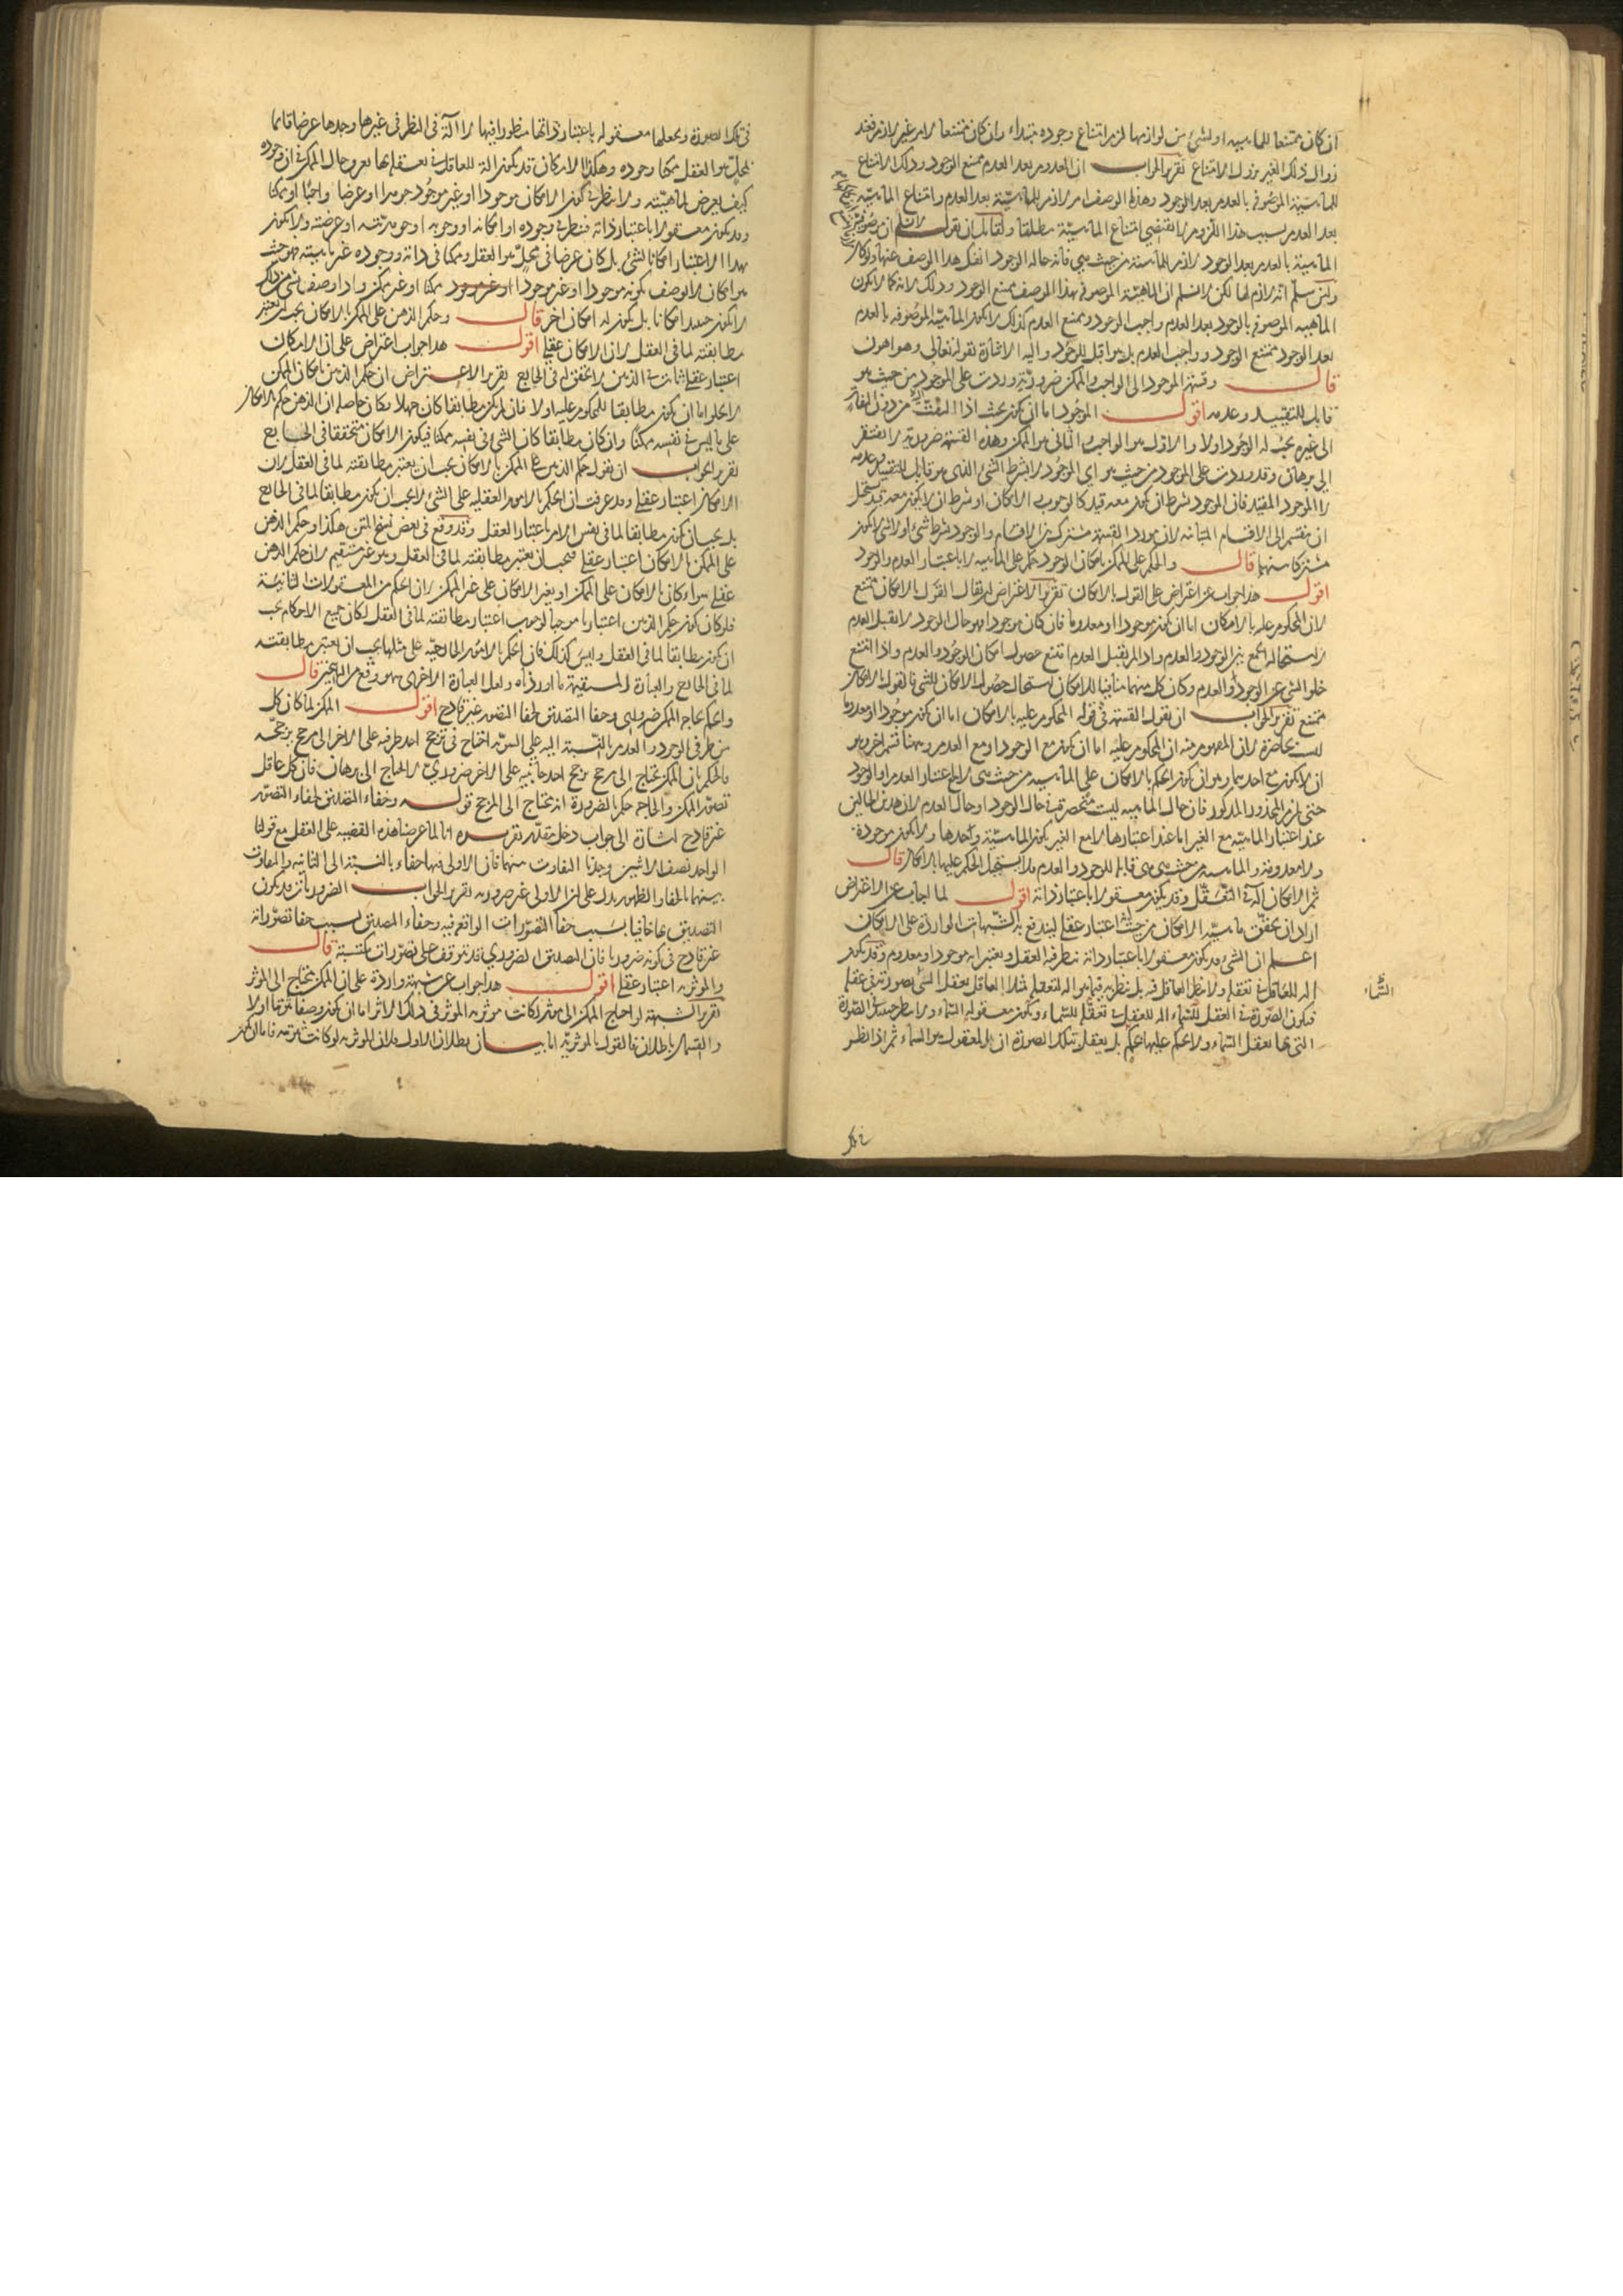 ان كان ممتنعا للماهيه او لشئ من لوازمها لزم امتناع وجوده مبتداء وان كان ممتنعا لامر غير لازم فعند
زوال ذلك الغير يزول الامتناع تقرير الجواب ان المعدوم بعد العدم ممتنع الوجود وذلك الامتناع
للماهية الموصوفة بالعدم بعد الوجود وهذا الوصف امر لازم للماهيّة بعد العدم وامتناع الماهيّة
بعد العدم بسبب هذا اللزوم لا يقتضي امتناع الماهيّة مطلقا ولقايل ان يقول لا نسلم ان موصوفية
الماهية بالعدم بعد الوجود لازم للماهية من حيث هي فانه حالة الوجود انفك هذا الوصف عنها ولو كان
ولئن سلم انه لازم لها لكن لا نسلم ان الماهية الموصوفة بهذا الوصف يمتنع الوجود وذلك لانه كما لا يكون
الماهيه الموصوفة بالوجود بعد العدم واجب الوجود وممتنع العدم كذلك لا يكون الماهيّة الموصُوفه بالعدم
بعد الوجود ممتنع الوجود وواجب العدم بل هو اقبل للوجُود واليه الاشارة بقوله تعالى وهو اهون
قال وقسمة الموجود الى الواجب والممكن ضرورية وردت على الموجود من حيث هو
قابل للتقييد وعدمه اقول الموجُود اما ان يكون بحيث اذا التفت اليه من دون التفات
الى غيره يجب له الوجُود اولا والاول هو الواجب والثاني هو الممكن وهذه القسمة ضرورية لا تفتقر
الى برهان وقد وردت على الموجود من حيث هو اي الموجُود لا بشرط الشئ الذي هو قابل للتقييد وعدمه
لا الموجود المقيّد فان الموجود بشرط ان يكون معه قيد كالوجوب والامكان او بشرط ان لا يكون معه قيد يستحيل
ان ينقسم الى الاقسام المتباينه لان مورد القسمة مشترك بين الاقسام والموجود بشرط شئ او لا شئ لا يكون
مشتركا بينهما قال والحكم على الممكن بامكان الوجود حكم على الماهيه لا باعتبار العدم والوجود
اقول هذا جواب عن اعتراض على القول بالامكان تقرير الاعتراض ان يقال القول بالامكان ممتنع
لان المحكوم عليه بالامكان اما ان يكون موجودا او معدوما فان كان موجودا فهو حال الوجود لا يقبل العدم
لاستحالة الجمع بين الوجود والعدم واذا لم يقبل العدم امتنع حصول امكان الوجُود والعدم واذا امتنع
خلو الشئ عن الوجود والعدم وكان كل منهما منافيا للامكان استحال حصُول الامكان للشئ فالقول بالامكان
ممتنع تقرير الجواب ان نقول القسمة في قوله المحكوم عليه بالامكان اما ان يكون موجُودا او معدوما
ليست بحاصرة لان المفهوم منه ان المحكوم عليه اما ان يكون مع الوجود او مع العدم وههنا قسم اخر وهو
ان لا يكون مع احدهما وهو ان يكون الحكم بالامكان على الماهيه من حيث هي لا باعتبار العدم او الوجود
حتى يلزم المحذور المذكور فان حال الماهيه ليست منحصرة في حالة الوجود او حالة العدم لان هذين الحالين
عند اعتبار الماهيّة مع الغير اما عند اعتبارها لا مع الغير يكون الماهيّة واحدها ولا يكون موجودة
ولا معدومة والماهيه من حيث هي هي قابلة للوجود والعدم فلا يستحيل الحكم عليها بالامكان قال
ثم الامكان آلة في التعقّل وقد يكون معقولا باعتبار ذاته اقول لما اجاب عن الاعتراض
اراد ان يحقق ماهيّة الامكان من حيث انه اعتبار عقلي ليندفع به الشبهات الواردة على الامكان
اعلم ان الشئ قد يكون معقولا باعتبار ذاته ينظر فيه العقل ويعتبر انه موجود او معدوم وقد يكون
آلة للعاقل في تعقله ولا ينظر العاقل فيه بل ينظر به فيما هو آلة لتعقله مثلا العاقل يعقل الشئ بصورته في عقله
فيكون الصورة في العقل للسماء آلة للعقل في تعقّله للسماء ويكون معقوله السماء ولا ينظر حينئذ في الصّورة
التي بها يعقل السماء ولا يحكم عليها بحكم بل يعقل بتلك الصورة ان المعقول هو السماء ثم اذا نظر
السَّماء
في تلك الصورة ويجعلها معقوله باعتبار ذاتها منظورا فيها لا آلة في النظر في غيرها وجدها عرضا قايما
بمحلّ هو العقل ممكنا وجوده وهكذا الامكان قد يكون آلة للعاقل في تعقله بها يعرف حال الممكن في ان وجوده
كيف يعرض لماهيّته ولا ينظر في كون الامكان موجودا او غير موجُود جوهرا او عرضا واجبًا او ممكنا
وقد يكون معقولا باعتبار ذاته فينظر في وجوده او امكانه او وجوبه او جوهريّته او عرضيته ولا يكون
بهذا الاعتبار امكانا لشئ بل كان عرضا في محلّ هو العقل وممكنا في ذاته ووجوده غير ماهيته فهو حيث
هو امكان لا يوصف بكونه موجودا او غير موجودا ممكنا او غير ممكن واذا وصف بشئ من ذلك
لا يكون حينئذ امكانا بل يكون له امكان اخر قال وحكم الذهن على الممكن بالامكان يجب ان يعتبر
مطابقته لما في العقل لان الامكان عقلي اقول هذا جواب اعتراض على ان الامكان
اعتبار عقلي ثابت في الذهن لا تحقق له في الخارج تقرير الاعتراض ان حكم الذهن بامكان الممكن
لا يخلو اما ان يكون مطابقا للمحكوم عليه اولا فان لم يكن مطابقا كان جهلا وكان حاصله ان الذهن حكم بالامكان
على ما ليس في نفسه ممكنًا وان كان مطابقا كان الشئ في نفسه ممكنا فيكون الامكان متحققا في الخارج
تقرير الجواب ان نقول حكم الذهن على الممكن بالامكان يجب ان يعتبر مطابقته لما في العقل لان
الامكان اعتبار عقلي وقد عرفت ان الحكم بالامور العقليه على الشئ لا يجب ان يكون مطابقا لما في الخارج
بل يجب ان يكون مطابقا لما في نفس الامر باعتبار العقل وقد وقع في بعض نسخ المتن هكذا وحكم الذهن
على الممكن بالامكان اعتبار عقلي فيجب ان يعتبر مطابقته لما في العقل وهو غير مستقيم لان حكم الذهن
عقلي سواء كان بالامكان على الممكن او بغير الامكان على غير الممكن لان الحكم من المعقولات الثانية
فلو كان كون حكم الذهن اعتباريا موجبا لوجوب اعتبار مطابقته لما في العقل لكان جميع الاحكام يجب
ان يكون مطابقا لما في العقل وليس كذلك فان الحكم بالامور الخارجيّة على مثلها يجب ان يعتبر مطابقته
لما في الخارج والعبارة المستقيمة ما اوردناه ولعل العبارة الاخرى سهو وقع من الناسخين قال
والحكم بحاجة الممكن ضروري وخفاء التصديق لخفاء التصور غير قادح اقول الممكن لما كان كل
من طرفي الوجود والعدم بالنسبة اليه على السّويّة احتاج في ترجّح احد طرفيه على الاخر الى مرجح يرجحه
والحكم بان الممكن يحتاج الى مرجح يرجح احد جانبيه على الاخر ضروري لا يحتاج الى برهان فان كل عاقل
تصوّر الممكن والحاجة حكم بالضرورة انه يحتاج الى المرجح قوله وخفاء التصديق لخفاء التصوّر
غير قادح اشارة الى جواب دخل مقدّر تقريره انا لما عرضنا هذه القضيه على العقل مع قولنا
الواحد نصف الاثنين وجدنا التفاوت بينهما فان الاولى فيها خفاء بالنسبة الى الثانيه والتفاوت
بينهما بالخفاء والظهور يدل على ان الاولى غير ضروريه تقرير الجواب الضروريات قد يكون
التصديق بها خافيا بسَبب خفاء التصوّرات الواقعة فيه وخفاء التصديق بسبب خفاء تصوّراته
غير قادح في كونه ضروريا فان التصديق الضروري قد يتوقف على تصوّرات مكتسبة قال
والمؤثريه اعتبار عقلي اقول هذا جواب عن شبهة واردة على ان الممكن يحتاج الى المؤثر
تقرير الشبهة لو احتاج الممكن الى مؤثر لكانت مؤثريه المؤثر في ذلك الاثر اما ان يكون وصفا ثبوتيا اولا
والقسمان باطلان فالقول بالمؤثريّة اما بيان بطلان الاول فلان المؤثريه لو كانت ثبوتيه فاما ان يكون